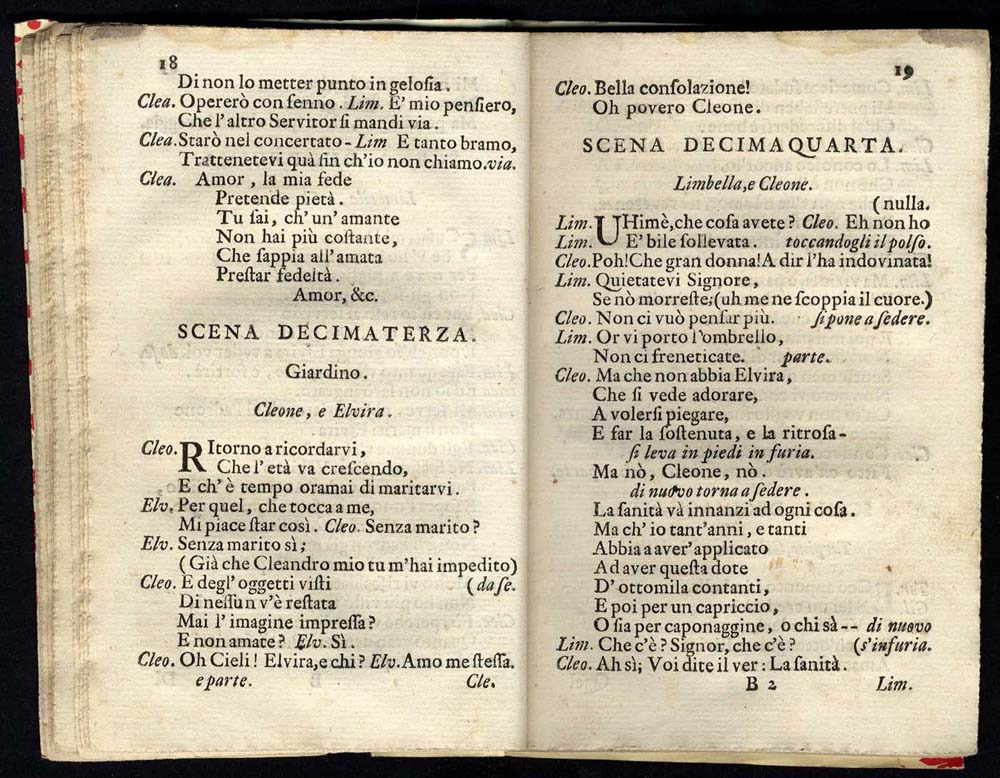 18
Di non lo metter punto in geloſia.
Clea. Opererò con ſenno. Lim. E' mio penſiero,
Che l'altro Servitor ſi mandi via.
Clea. Starò nel concertato - Lim E tanto bramo,
Trattenetevi quà fin ch'io non chiamo. via.
Clea. Amor, la mia fede
Pretende pietà.
Tu ſai, ch' un' amante
Non hai più coſtante,
Che ſappia all'amata
Preſtar fedeltà.
Amor, &c.
SCENA DECIMATERZA.
Giardino.
Cleone, e Elvira.
Cleo. RItorno a ricordarvi,
Che l' età va creſcendo,
E ch' è tempo oramai di maritarvi.
Elv. Per quel, che tocca a me,
Mi piace ſtar così. Cleo. Senza marito?
Elv. Senza marito sì;
(Già che Cleandro mio tu m'hai impedito)
Cleo. E degl' oggetti viſti (da ſe.
Di neſſun v'è reſtata
Mai l' imagine impreſſa?
E non amate? Elv. Sì.
Cleo. Oh Cieli! Elvira, e chi? Elv. Amo me ſteſſa.
e parte. Cle.
19
Cleo. Bella conſolazione!
Oh povero Cleone.
SCENA DECIMAQUARTA.
Limbella, e Cleone.
(nulla.
Lim. UHimè, che coſa avete? Cleo. Eh non ho
Lim. E' bile ſollevata. toccandogli il polſo.
Cleo. Poh! Che gran donna! A dir l'ha indovinata!
Lim. Quietatevi Signore,
Se nò morreſte; (uh me ne ſcoppia il cuore.)
Cleo. Non ci vuò penſar più. ſi pone a ſedere.
Lim. Or vi porto l'ombrello,
Non ci freneticate. parte.
Cleo. Ma che non abbia Elvira,
Che ſi vede adorare,
A volerſi piegare,
E far la ſoſtenuta, e la ritroſa-
ſi leva in piedi in furia.
Ma nò, Cleone, nò.
di nuovo torna a ſedere.
La ſanità và innanzi ad ogni coſa.
Ma ch' io tant'anni, e tanti
Abbia a aver' applicato
Ad aver queſta dote
D' ottomila contanti,
E poi per un capriccio,
O ſia per caponaggine, o chi sà-- di nuovo
Lim. Che c'è? Signor, che c'è? (s'infuria.
Cleo. Ah sì; Voi dite il ver: La ſanità.
B 2 Lim.